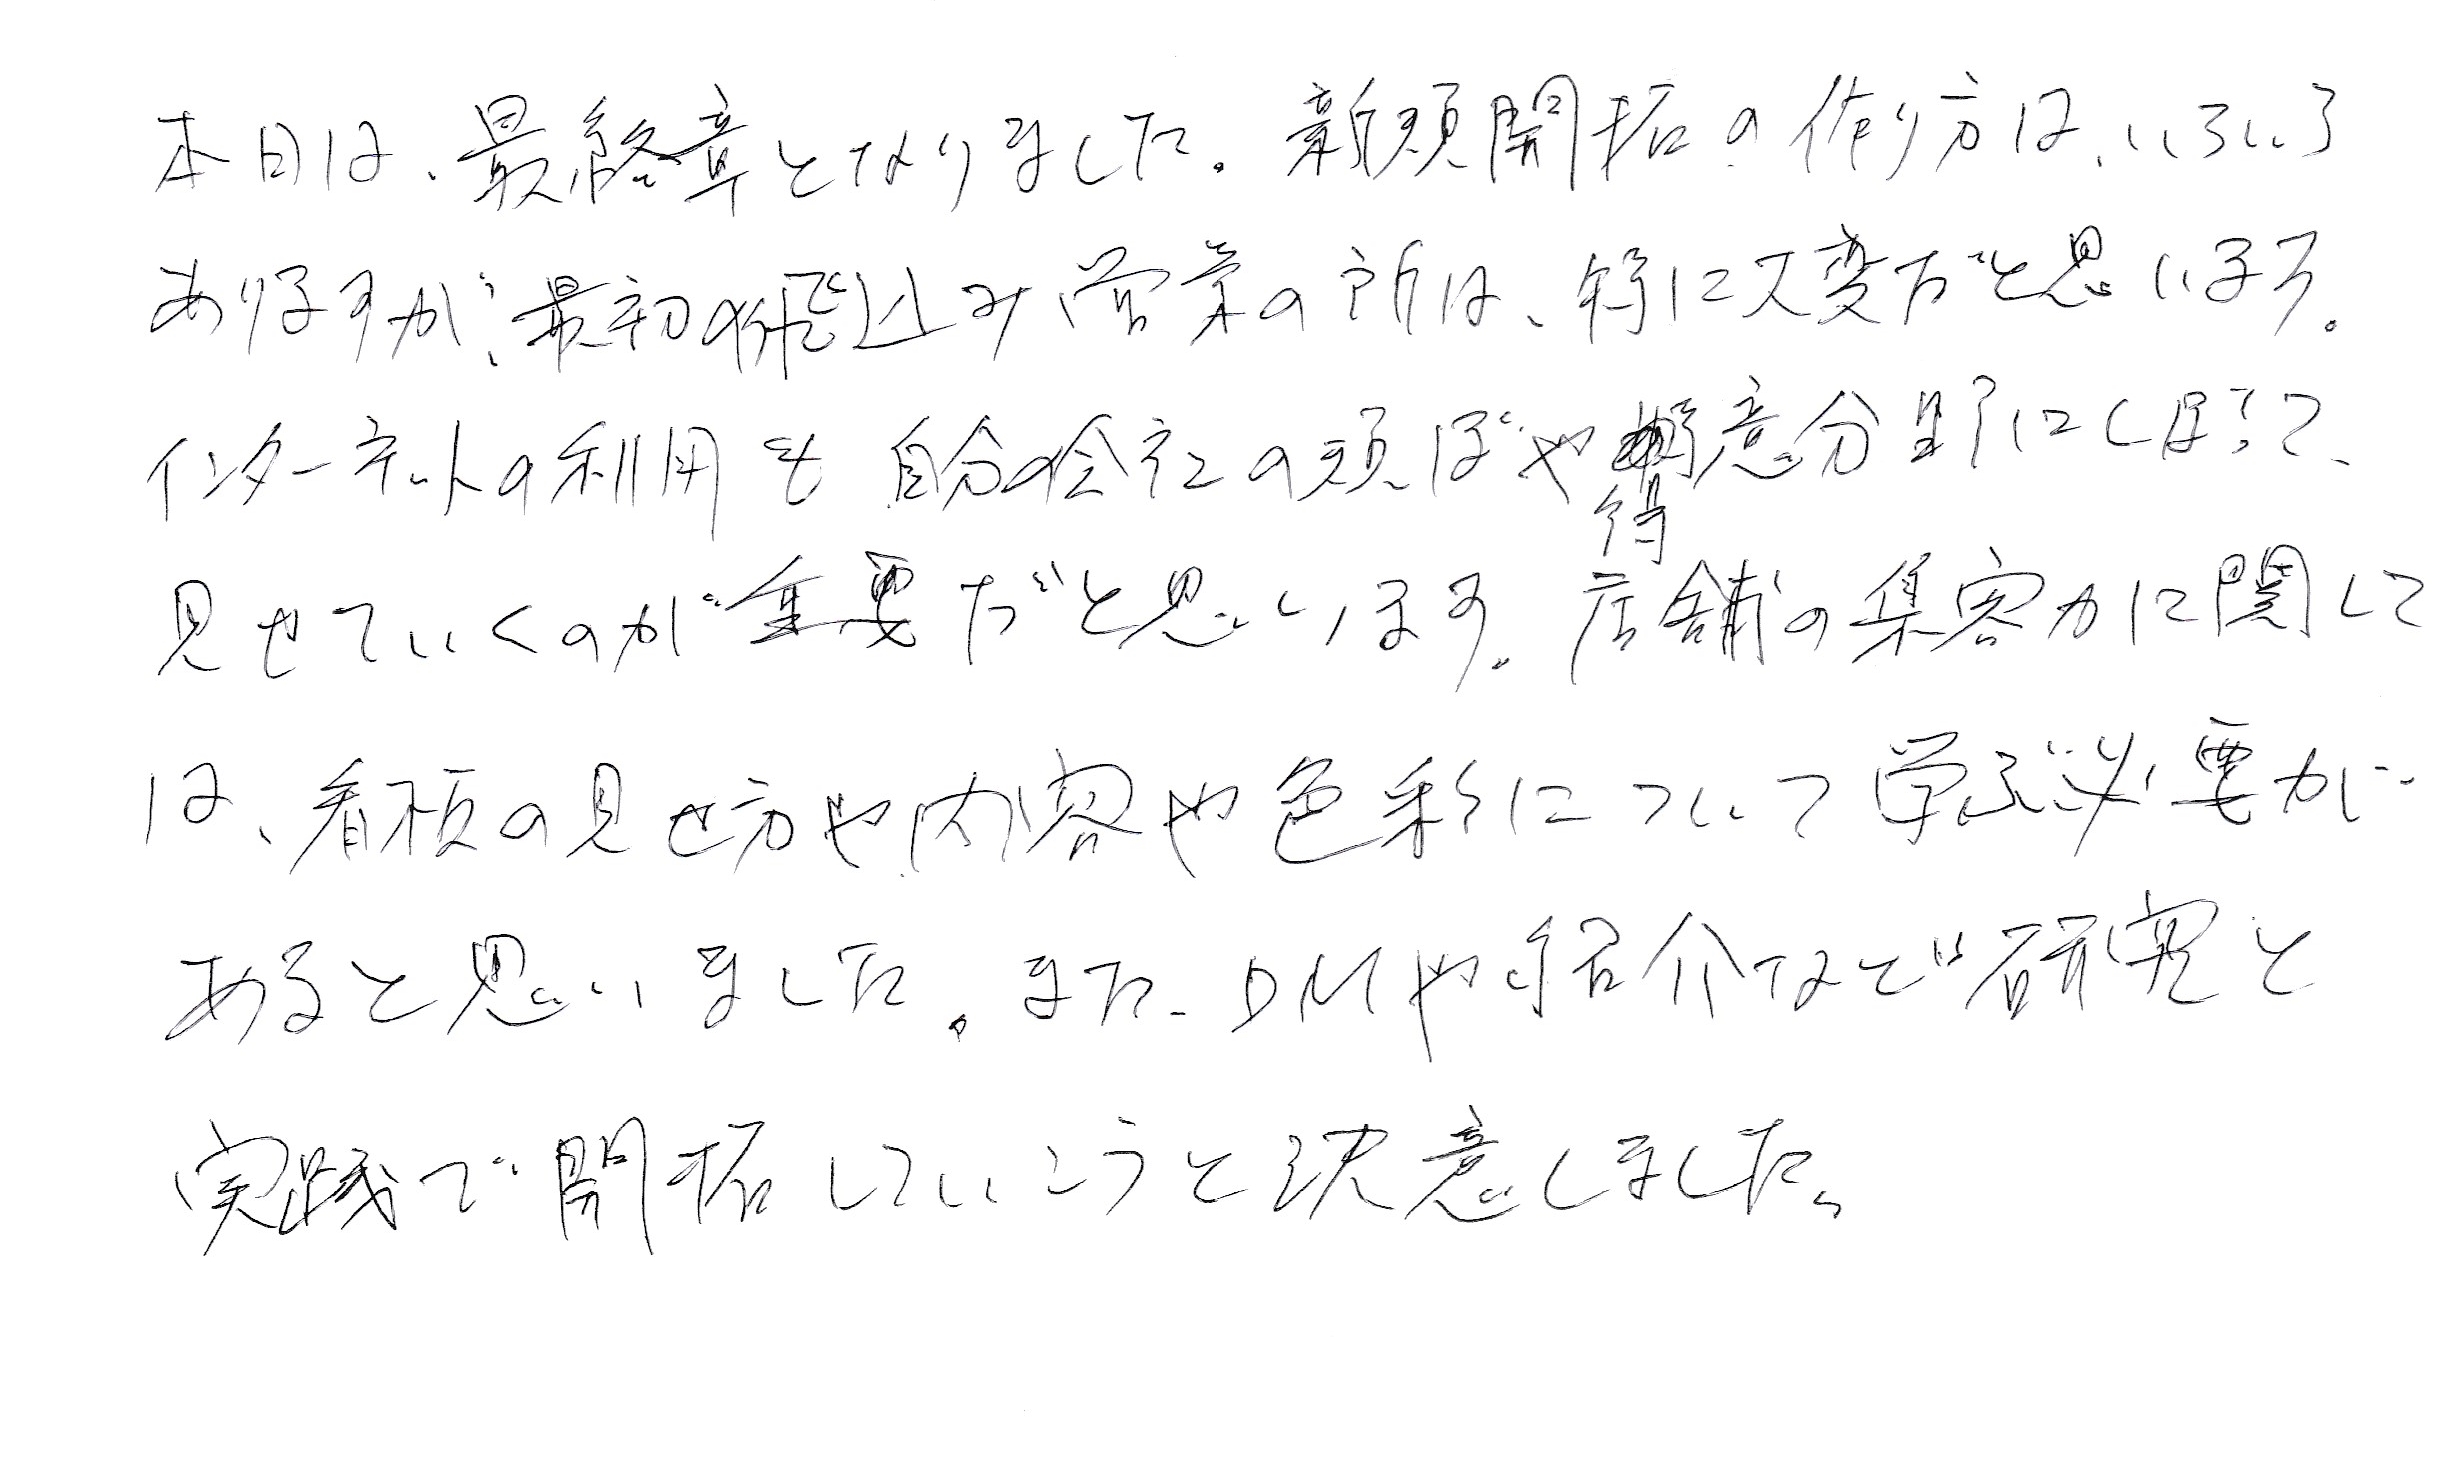 本日は、最終章となりました。新規開拓の作り方は、いろいろ
ありますが、最初の飛込み営業の所は、特に大変だと思います。
インターネットの利用も自分の会社の強みや得意分野にしぼって、
見せていくのが重要だと思います。店舗の集客力に関して
は、看板の見せ方や内容や色彩について学ぶ必要が
あると思いました。また、DMや紹介など研究と
実践で開拓していこうと決意しました。